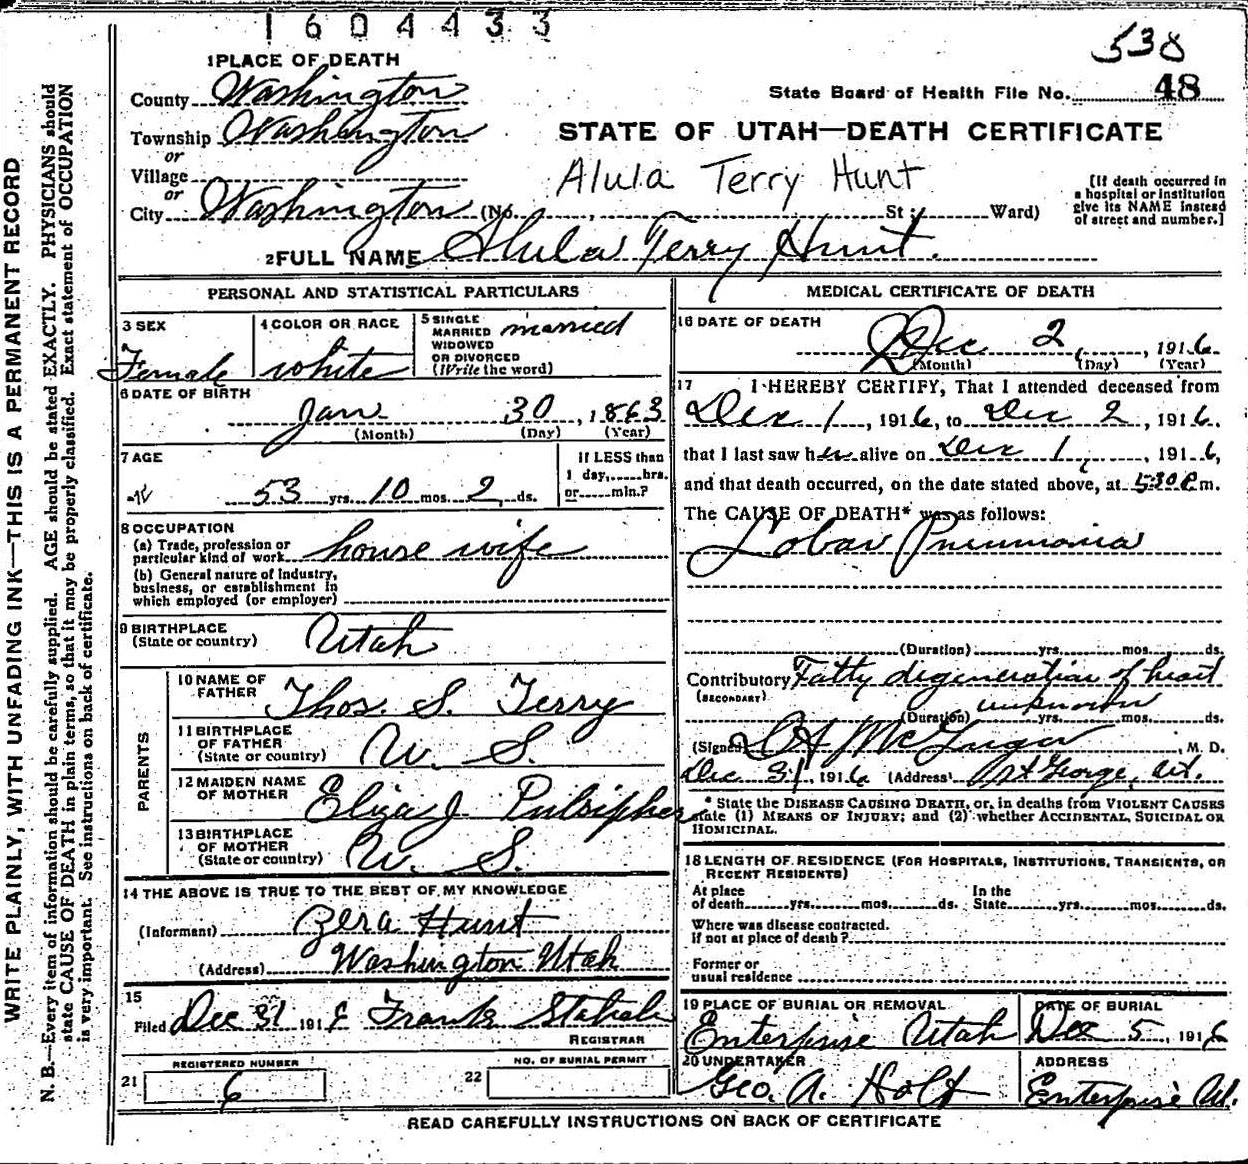 1604433
538
1 PLACE OF DEATH
County Washington
State Board of Health File No. 48
Township Washington
STATE OF UTAH—DEATH CERTIFICATE
or
Village
Alula Terry Hunt
or
City Washington (No. , St ; Ward)
[If death occurred in
a hospital or institution
give its NAME instead
of street and number.]
2 FULL NAME Alula Terry Hunt.
PERSONAL AND STATISTICAL PARTICULARS
3 SEX
Female
4 COLOR OR RACE
white
5 SINGLE
MARRIED
WIDOWED
OR DIVORCED
(Write the word)
married
6 DATE OF BIRTH
Jan 30, 1863
(Month) (Day) (Year)
7 AGE
53 yrs. 10 mos. 2 ds.
If LESS than
1 day, hrs.
or min.?
8 OCCUPATION
(a) Trade, profession or
particular kind of work house wife
(b) General nature of industry,
business, or establishment in
which employed (or employer)
9 BIRTHPLACE
(State or country) Utah
PARENTS
10 NAME OF
FATHER Thos. S. Terry
11 BIRTHPLACE
OF FATHER
(State or country) U. S.
12 MAIDEN NAME
OF MOTHER Eliza J. Pulsipher
13 BIRTHPLACE
OF MOTHER
(State or country) U. S.
14 THE ABOVE IS TRUE TO THE BEST OF MY KNOWLEDGE
(Informant) Zera Hunt
(Address) Washington Utah
15
Filed Dec 31 191 6 Frank
REGISTRAR
REGISTERED NUMBER
21 6
NO. OF BURIAL PERMIT
22
MEDICAL CERTIFICATE OF DEATH
16 DATE OF DEATH
Dec 2, 1916
(Month) (Day) (Year)
17 I HEREBY CERTIFY, That I attended deceased from
Dec 1, 1916, to Dec 2, 1916.
that I last saw her alive on Dec 1, 1916,
and that death occurred, on the date stated above, at 5:30 P.m.
The CAUSE OF DEATH* was as follows:
Lobar Pneumonia
(Duration) yrs. mos. ds.
Contributory Fatty degeneration of heart
(SECONDARY)
unknown
(Duration) yrs. mos. ds.
(Signed) McGregor, M. D.
Dec 31, 1916 (Address) St George, Ut.
* State the DISEASE CAUSING DEATH, or, in deaths from VIOLENT CAUSES
state (1) MEANS OF INJURY; and (2) whether ACCIDENTAL, SUICIDAL OR
HOMICIDAL.
18 LENGTH OF RESIDENCE (FOR HOSPITALS, INSTITUTIONS, TRANSIENTS, OR
RECENT RESIDENTS)
At place In the
of death yrs. mos. ds. State yrs. mos. ds.
Where was disease contracted.
if not at place of death?
Former or
usual residence
19 PLACE OF BURIAL OR REMOVAL
Enterprise Utah
DATE OF BURIAL
Dec 5, 1916
20 UNDERTAKER
Geo. A. Holt
ADDRESS
Enterprise Ut.
READ CAREFULLY INSTRUCTIONS ON BACK OF CERTIFICATE
WRITE PLAINLY, WITH UNFADING INK—THIS IS A PERMANENT RECORD
N. B.—Every item of information should be carefully supplied. AGE should be stated EXACTLY. PHYSICIANS should
state CAUSE OF DEATH in plain terms, so that it may be properly classified. Exact statement of OCCUPATION
is very important. See instructions on back of certificate.